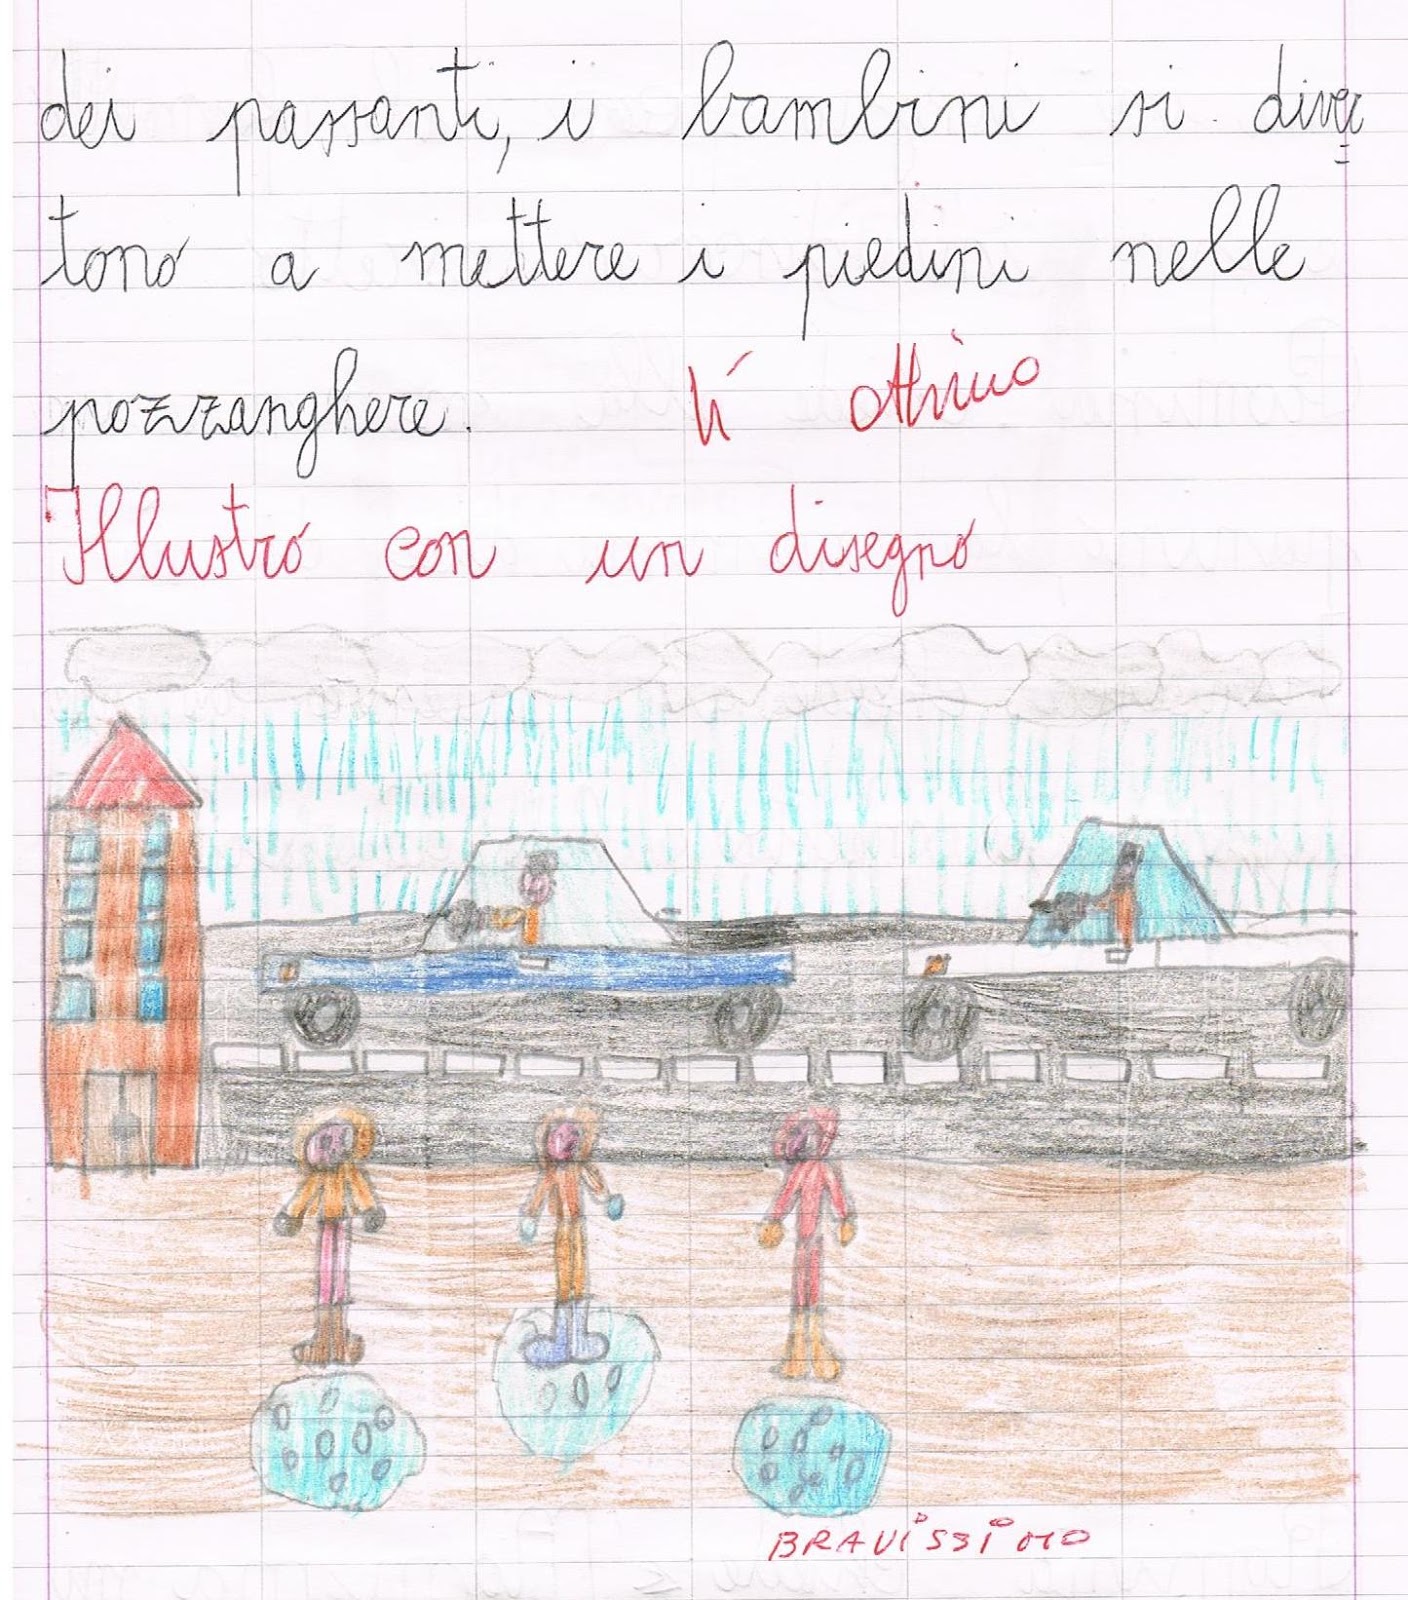 dei passanti, i bambini si diver=
tono a mettere i piedini nelle
pozzanghere. Ottimo
Illustro con un disegno
BRAVISSIMO